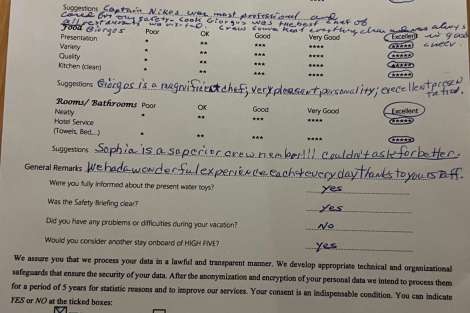 Suggestions Captain Nikos was most professional and
cared for our safety. Cook Giorgos was the best chef of
all restaurants we visited. Crew always
Food Giorgos Poor OK Good Very Good Excellent in good
Presentation * ** *** **** *****
Variety * ** *** **** *****
Quality * ** *** **** *****
Kitchen (clean) * ** *** **** *****
Suggestions Giorgos is a magnificent chef; very pleasent personality; execellent
Rooms/ Bathrooms Poor OK Good Very Good Excellent
Neatly * ** *** **** *****
Hotel Service
(Towels, Bed...) * ** *** **** *****
Suggestions Sophia is a saperior crew member!!! couldn't ask for better.
General Remarks We had a wonderful experience each & every day Thanks to your staff.
Were you fully informed about the present water toys? yes
Was the Safety Briefing clear? yes
Did you have any problems or difficulties during your vacation? No
Would you consider another stay onboard of HIGH FIVE? yes
We assure you that we process your data in a lawful and transparent manner. We develop appropriate technical and organizational
safeguards that ensure the security of your data. After the anonymization and encryption of your personal data we intend to process them
for a period of 5 years for statistic reasons and to improve our services. Your consent is an indispensable condition. You can indicate
YES or NO at the ticked boxes: